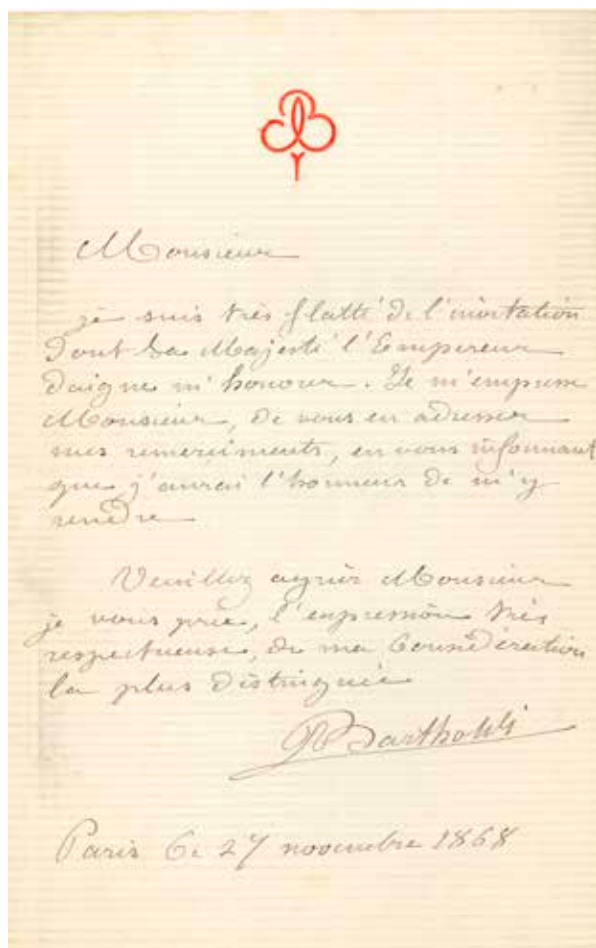 Monsieur
je suis très flatté de l'invitation
dont Sa Majesté l'Empereur
daigne m'honorer. Je m'empresse
Monsieur, de vous en adresser
mes remerciments, en vous informant
que j'aurai l'honneur de m'y
rendre
Veuillez agréer Monsieur
je vous prie, l'expression très
respectueuse, de ma Considération
la plus distinguée
Bartholdi
Paris Ce 27 novembre 1868